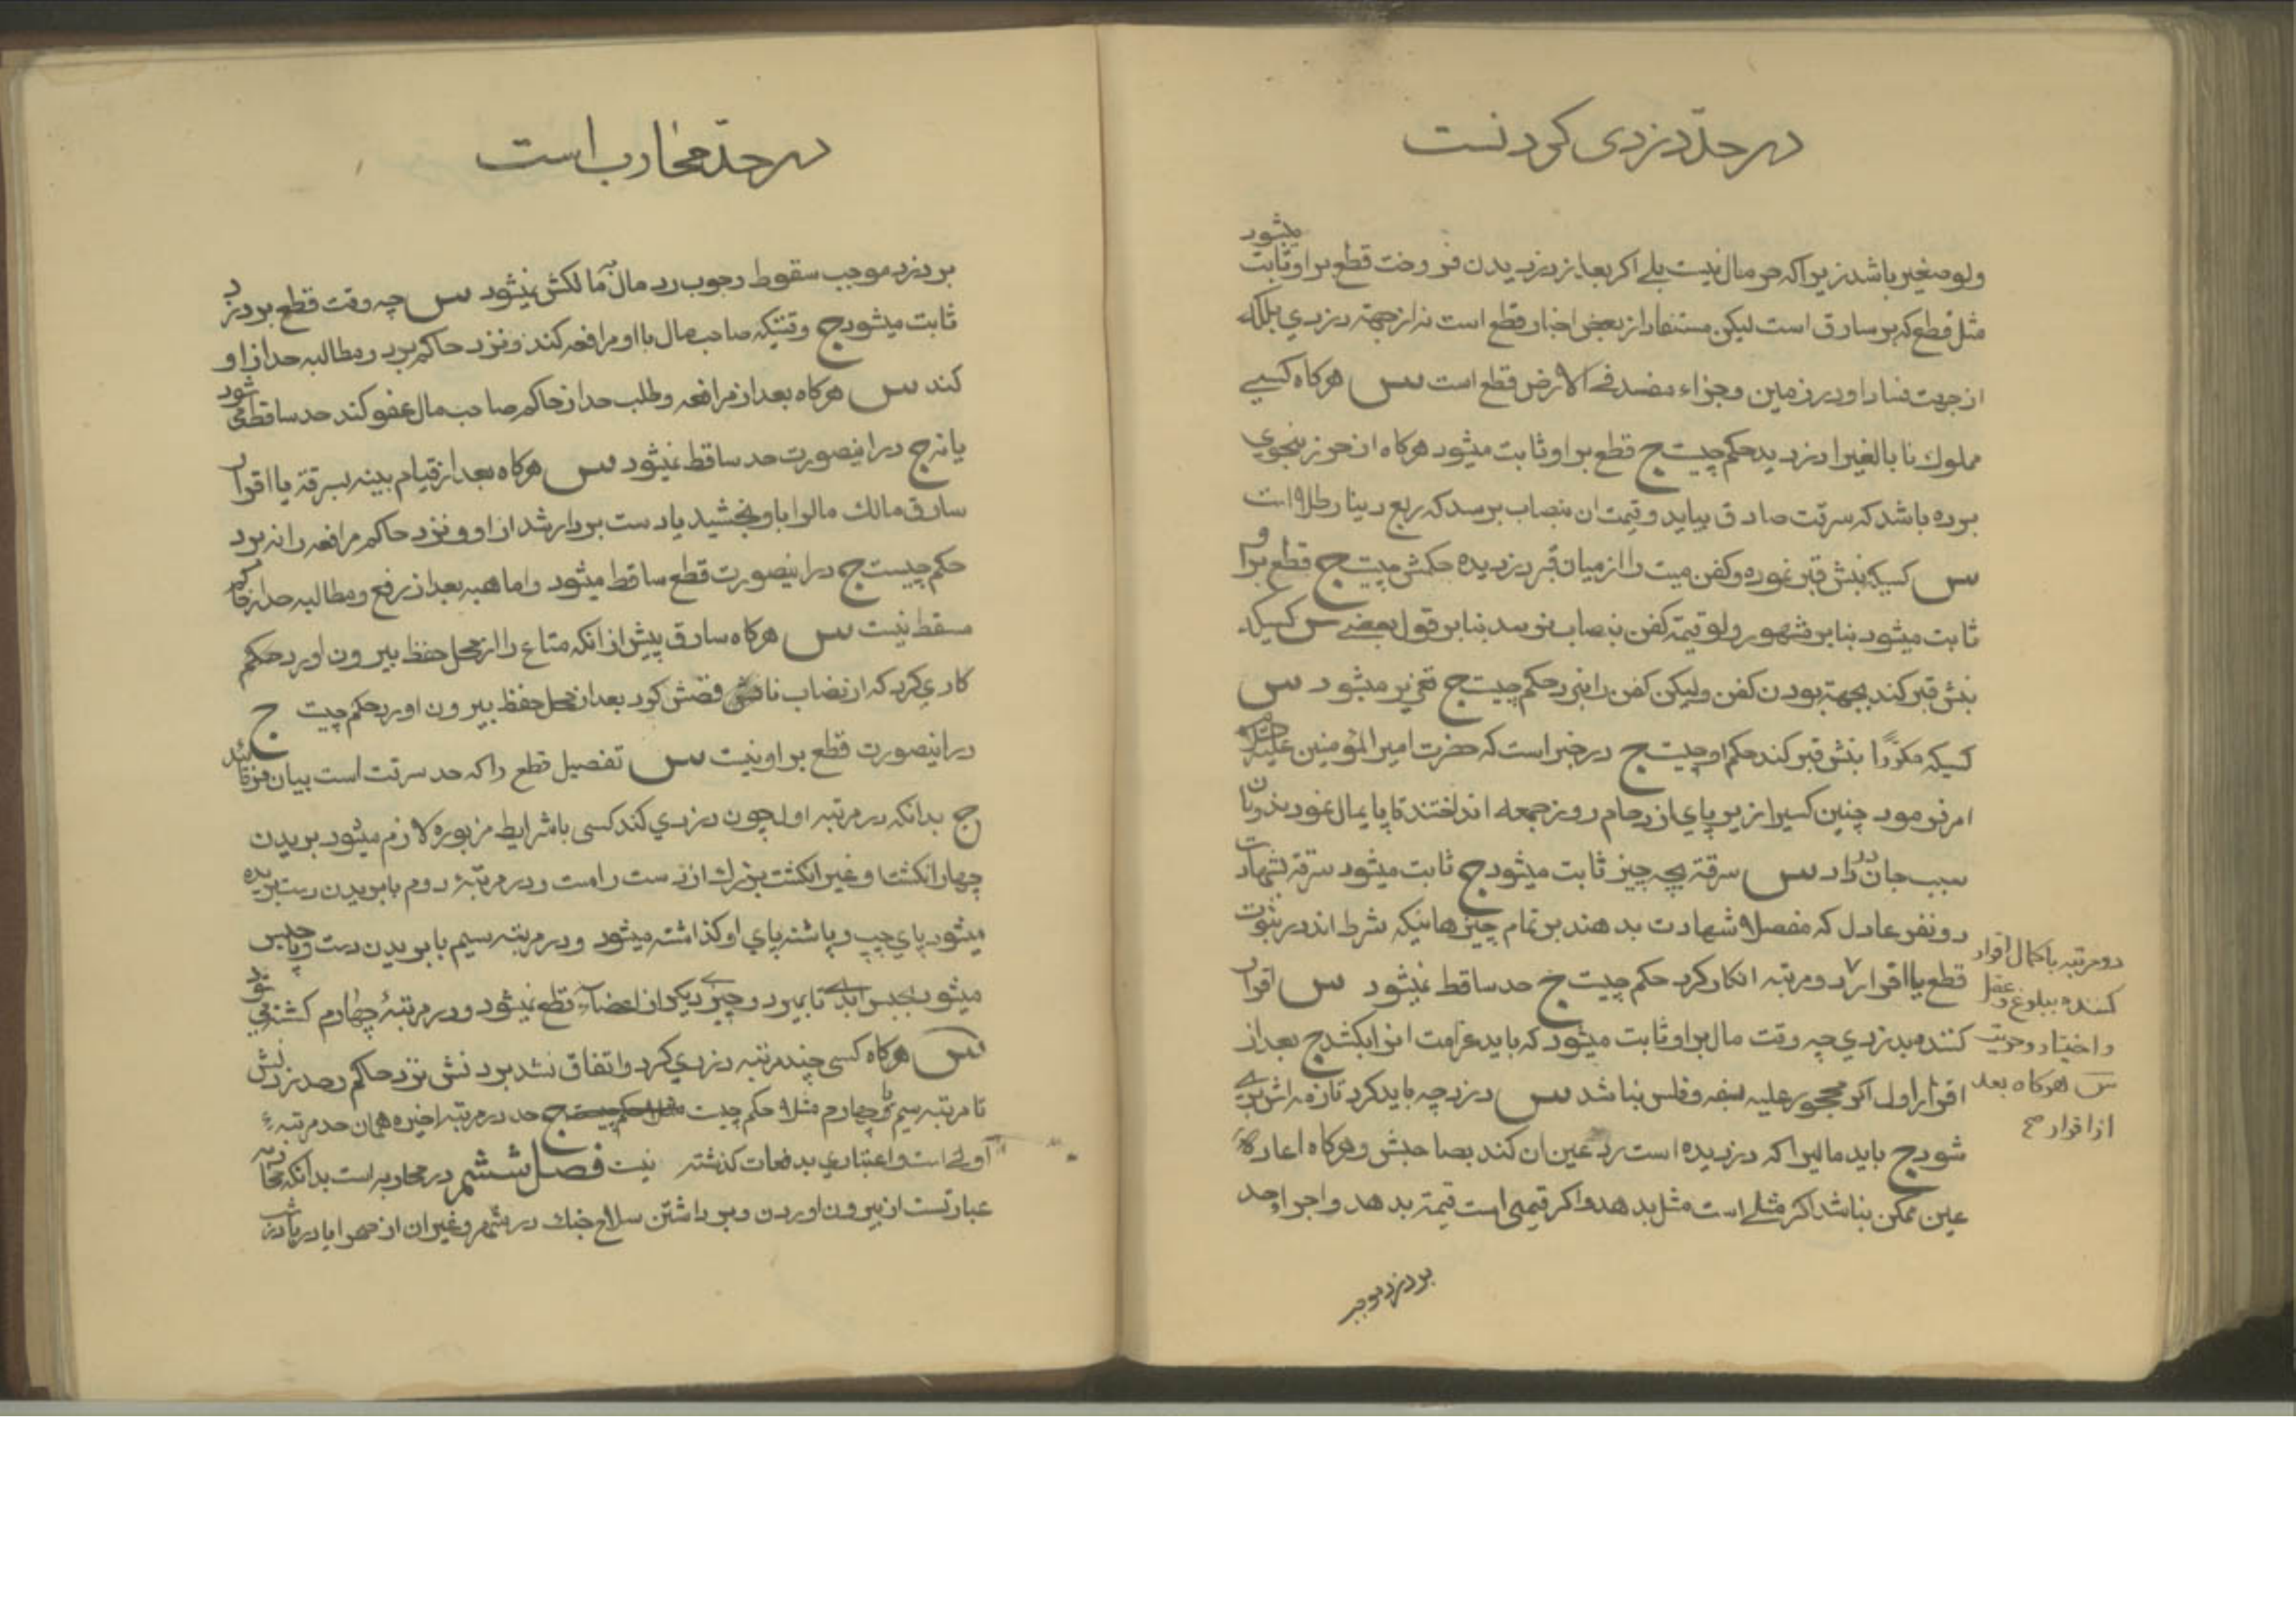 در حدّ دزدی کردنست
ولو صغیر باشد زیرا که حر مال نیست بلے اکر بعد از دزدیدن فروخت قطع بر او ثابت میشود
مثل قطع که بر سارق است لیکن مستفاد از بعض اخبار قطع است نه از جهته دزدي بلکه
از جهت فساد او در زمین و جزاء مفسد فے الارض قطع است س هرکاه کسیے
مملوك نا بالغیرا دزدید حکم چیست ج قطع بر او ثابت میشود هرکاه از حرز بنحوي
برده باشد که سرقت صادق بیاید و قیمت ان بنصاب برسد که ربع دینار طلا است
س کسیکه نبش قبر نموده و کفن میت را از میان قبر دزدیده حکمش چیست ج قطع بر او
ثابت میشود بنا بر مشهور ولو قیمة کفن بنصاب نرسد بنا بر قول بعضے س کسیکه
نبش قبر کند بجهة بردن کفن ولیکن کفن را نبرد حکم چیست ج تعزیر میشود س
کسیکه مکرّرًا نبش قبر کند حکم او چیست ج در خبر است که حضرت امیر المؤمنین علیه
امر فرمود چنین کسیرا زیر پاي ازدحام روز جمعه انداختند تا پایمال نمودند و بان
سبب جان داد س سرقة بچه چیز ثابت میشود ج ثابت میشود سرقة بشهادت
دو نفر عادل که مفصلا شهادت بدهند بر تمام چیزهائیکه شرط اند در ثبوت
قطع یا اقرار دو مرتبه انکار کرد حکم چیست ج حد ساقط نمیشود س اقرار
دو مرتبه با کمال اقرار
کننده ببلوغ و عقل
و اختیار و حریت
س هرکاه بعد
از اقرار صح
کننده بدزدي چه وقت مال بر او ثابت میشود که باید غرامت انرا بکشد ج بعد از
اقرار اول اکر محجور علیه لسفه و فلس نباشد س دزد چه باید کرد تا ذمه اش بری
شود ج باید مالیرا که دزدیده است رد عین ان کند بصاحبش و هرکاه اعاده
عین ممکن نباشد اکر مثلے است مثل بدهد و اکر قیمی است قیمة بدهد و اجراء حد
بر دزد موجب
در حدّ محارب است
بر دزد موجب سقوط وجوب رد مال بمالکش نمیشود س چه وقت قطع بر دزد
ثابت میشود ج وقتیکه صاحب مال با او مرافعه کند و نزد حاکم برد و مطالبه حد از او
کند س هرکاه بعد از مرافعه و طلب حد از حاکم صاحب مال عفو کند حد ساقط می شود
یا نه ج در اینصورت حد ساقط نمیشود س هرکاه بعد از قیام بینه بسرقة یا اقرار
سارق مالك مالرا باو بخشید یا دست بردار شد از او و نزد حاکم مرافعه را نبرد
حکم چیست ج در اینصورت قطع ساقط میشود و اما هبه بعد از رفع و مطالبه حد از حاکم
مسقط نیست س هرکاه سارق پیش از انکه متاع را از محل حفظ بیرون اورد حکم
کاري کرد که از نصاب ناقص کرد بعد از محل حفظ بیرون اورد حکم چیست ج
در اینصورت قطع بر او نیست س تفصیل قطع را که حد سرقت است بیان فرمائید
ج بدانکه در مرتبه اول چون دزدي کند کسی با شرایط مزبوره لازم میشود بریدن
چهار انکشت و غیر انکشت بزرك از دست راست و در مرتبهٔ دوم بابریدن دست بریده
میشود پاي چپ و پاشنه پاي او کذاشته میشود و در مرتبه سیم با بریدن دست و پا حبس
میشود بحبس ابدے تا بمیرد و چیزے دیکر از اعضاء قطع نمیشود و در مرتبهٔ چهارم کشته می شود
س هرکاه کسی چند مرتبه دزدي کرد و اتفاق نشد بردنش نزد حاکم و حد زدنش
تا مرتبه سیم یا چهارم مثلا حکم چیست ج حد در مرتبه اخیره همان حد مرتبهٔ
اولے است و اعتباري بدفعات کذشته نیست فصل ششم در محاربه است بدانکه محاربه
عبارتست از بیرون اوردن و برداشتن سلاح جنك در شهر و غیر ان از صحرا یا دریا